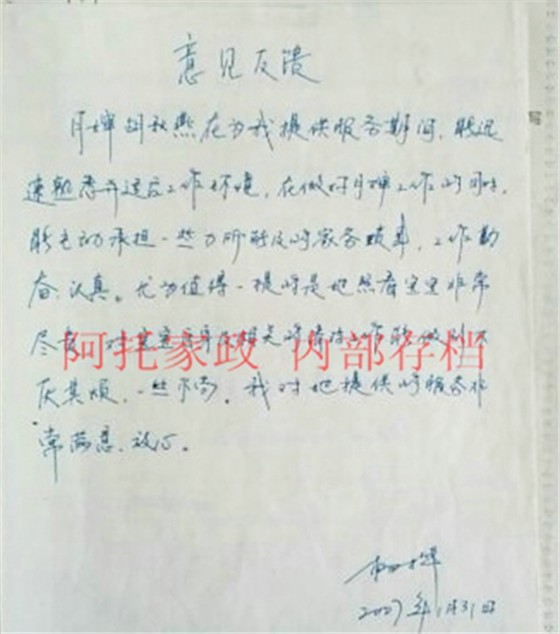 意见反馈
月嫂胡秋燕在为我提供服务期间，能迅
速熟悉并适应工作环境，在做好月嫂工作的同时，
能主动承担一些力所能及的家务琐事，工作勤
奋、认真。尤为值得一提的是她照看宝宝非常
尽责，对宝宝
阿托家政 内部存档
厌其烦，一丝不苟，我对她提供的服务非
常满意、放心。
2007年1月31日